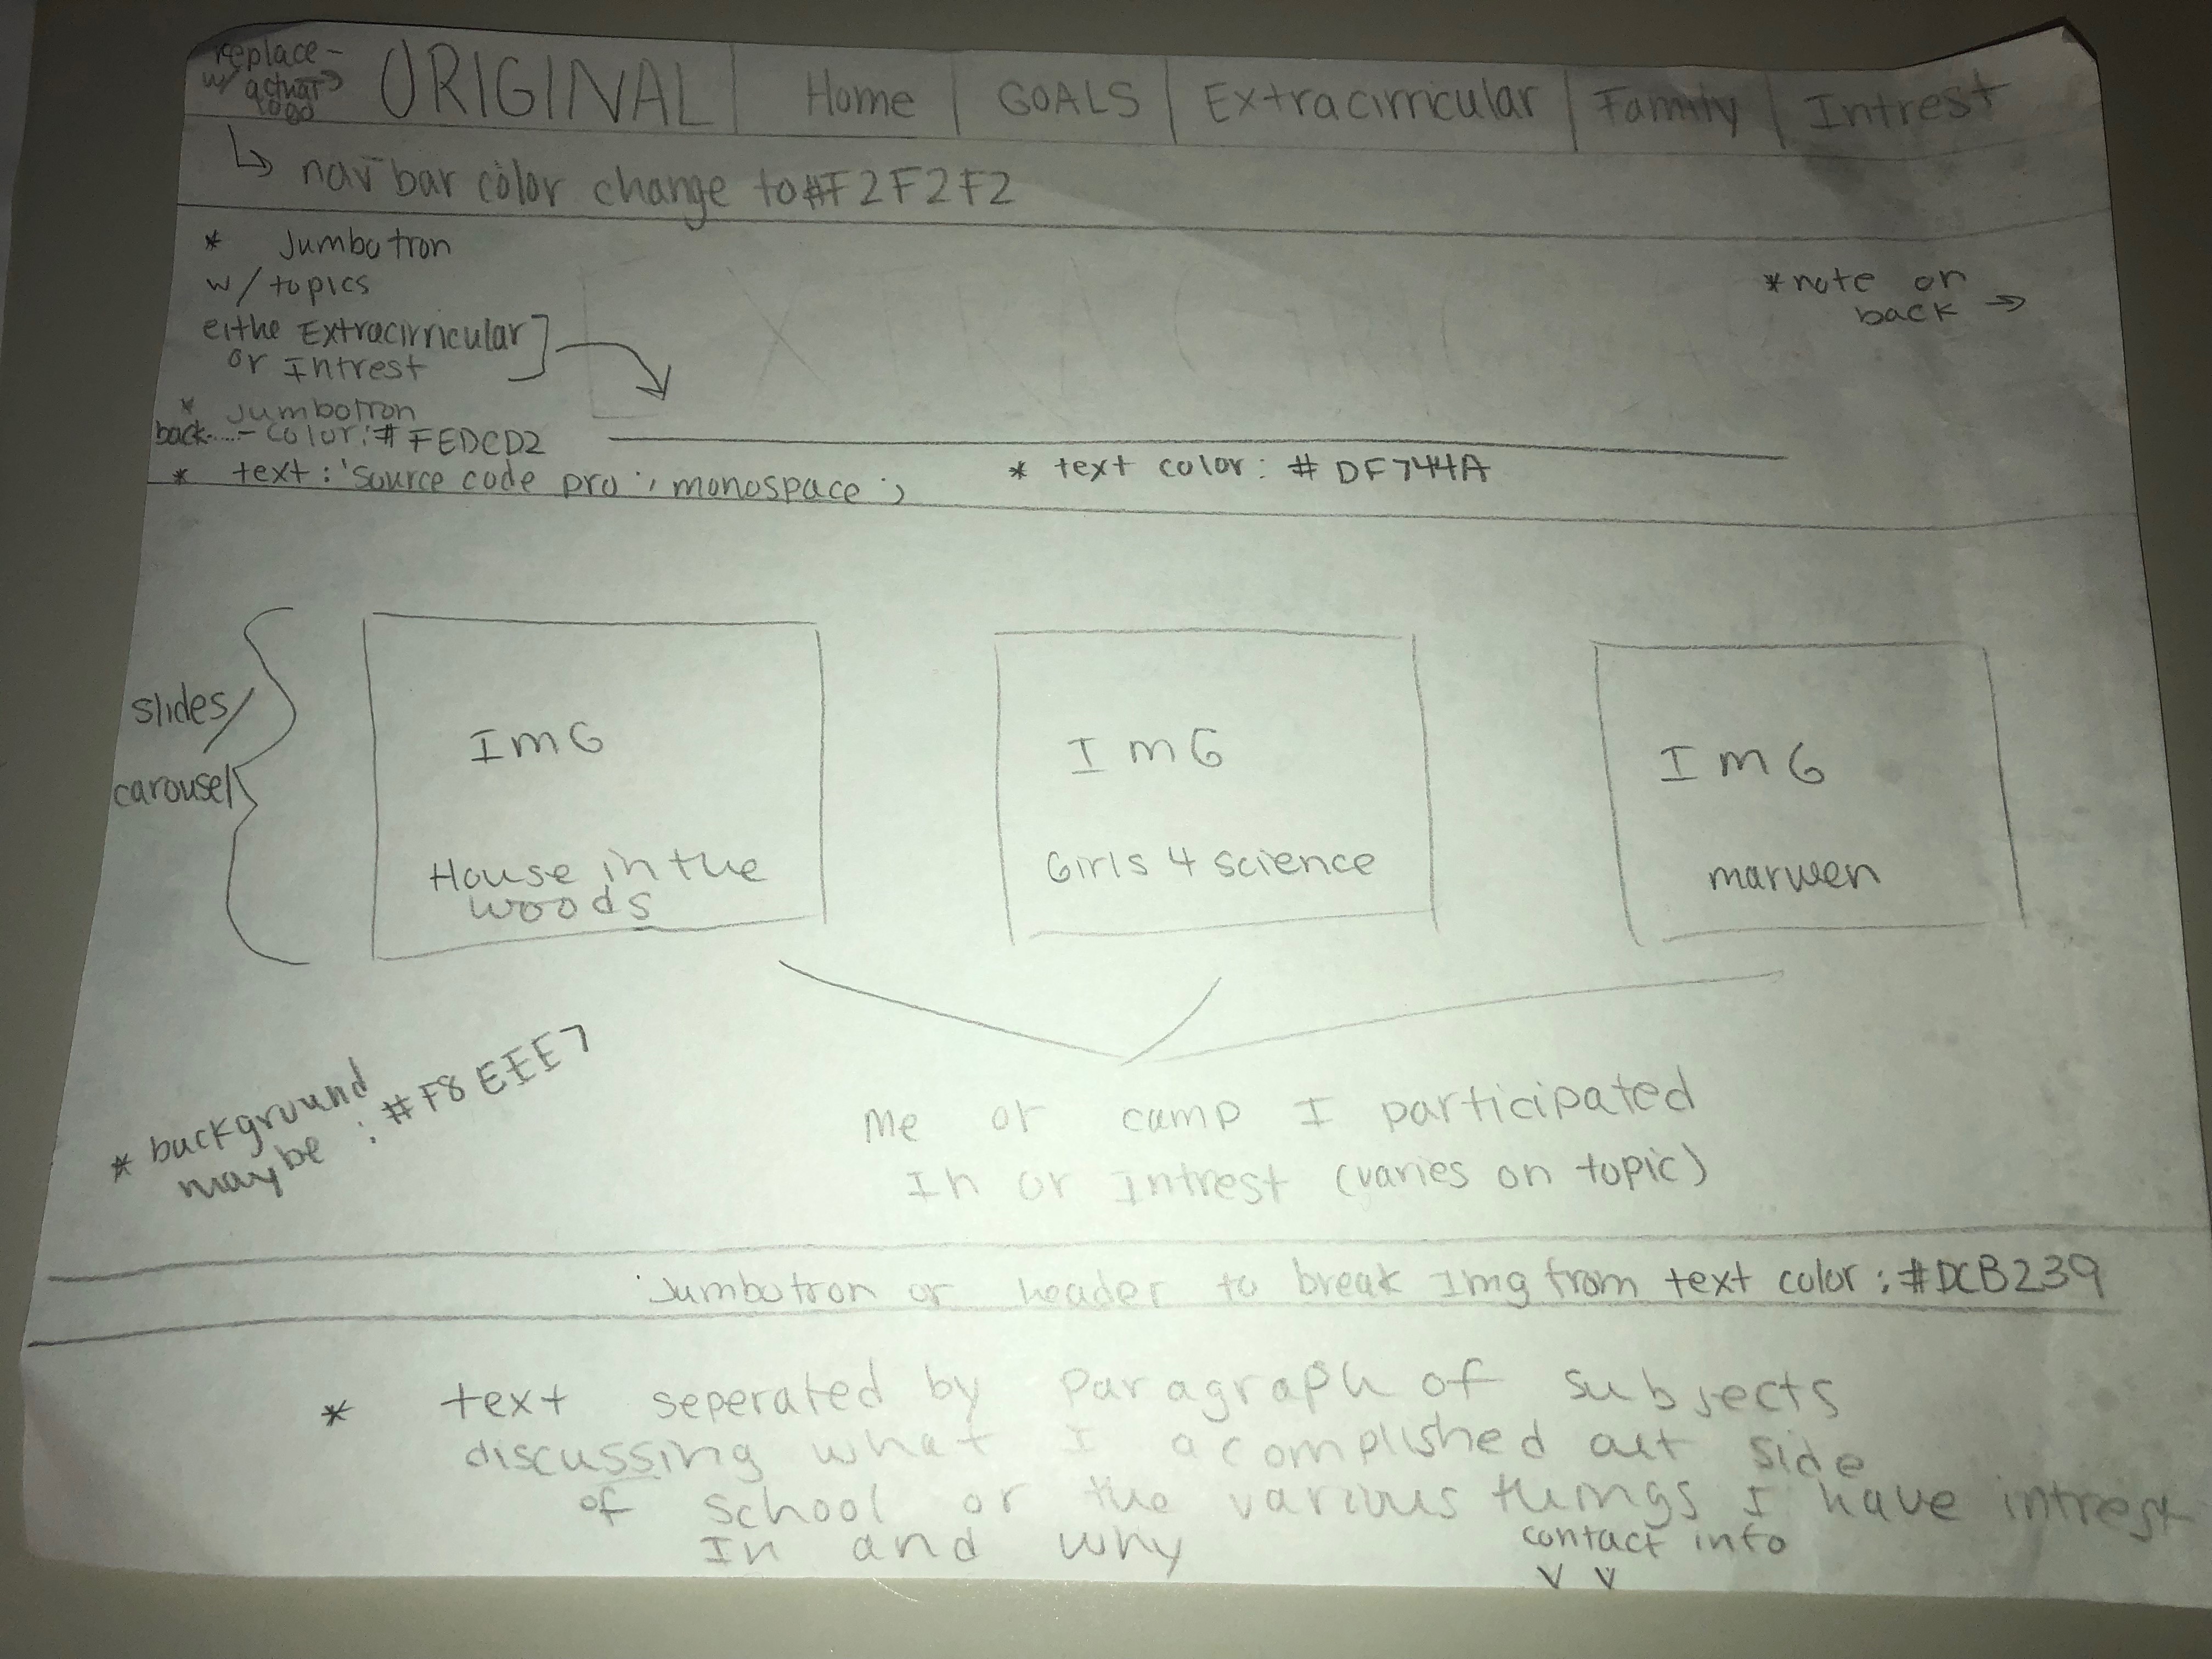 replace -
w/ actual
logo
ORIGINAL | Home | GOALS | Extracirricular | Family | Intrest
nav bar color change to #F2F2F2
* Jumbotron
w/ topics
eithe Extracirricular
or Intrest
* note on
back
* Jumbotron
back - color: # FEDCD2
* text: 'source code pro', monospace;
* text color: # DF744A
slides/
carousel
ImG
House in the
woods
ImG
Girls 4 science
ImG
marwen
* background
maybe : #F8EEE7
Me or camp I participated
In or Intrest (varies on topic)
Jumbotron or header to break Img from text color: #DCB239
* text seperated by Paragraph of subjects
discussing what I acomplished out side
of school or the various things I have intrest
In and why
contact info